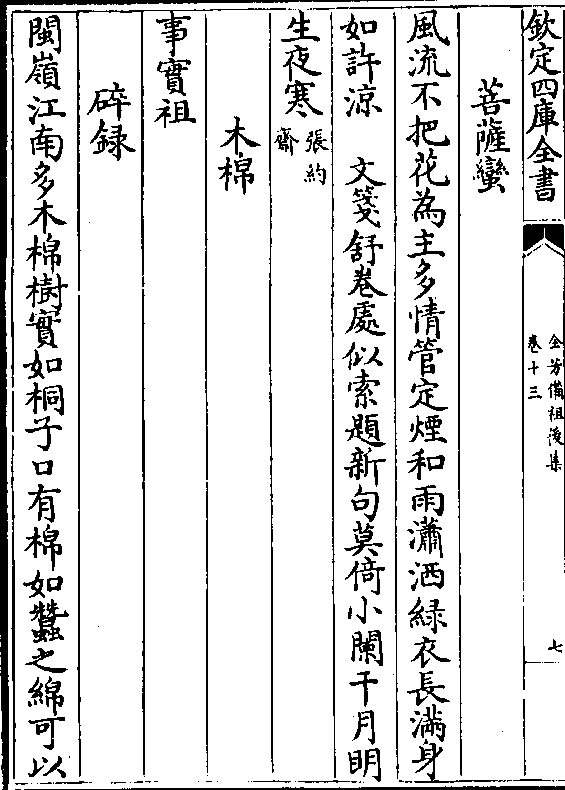 欽定四庫全書
全芳備祖後集
卷十三
七
菩薩蠻
風流不把花為主多情管定煙和雨瀟洒緑衣長滿身
如許涼　文箋舒卷處似索題新句莫倚小闌干月明
生夜寒張約
齋
木棉
事實祖
碎録
閩嶺江南多木棉樹實如桐子口有棉如蠶之綿可以